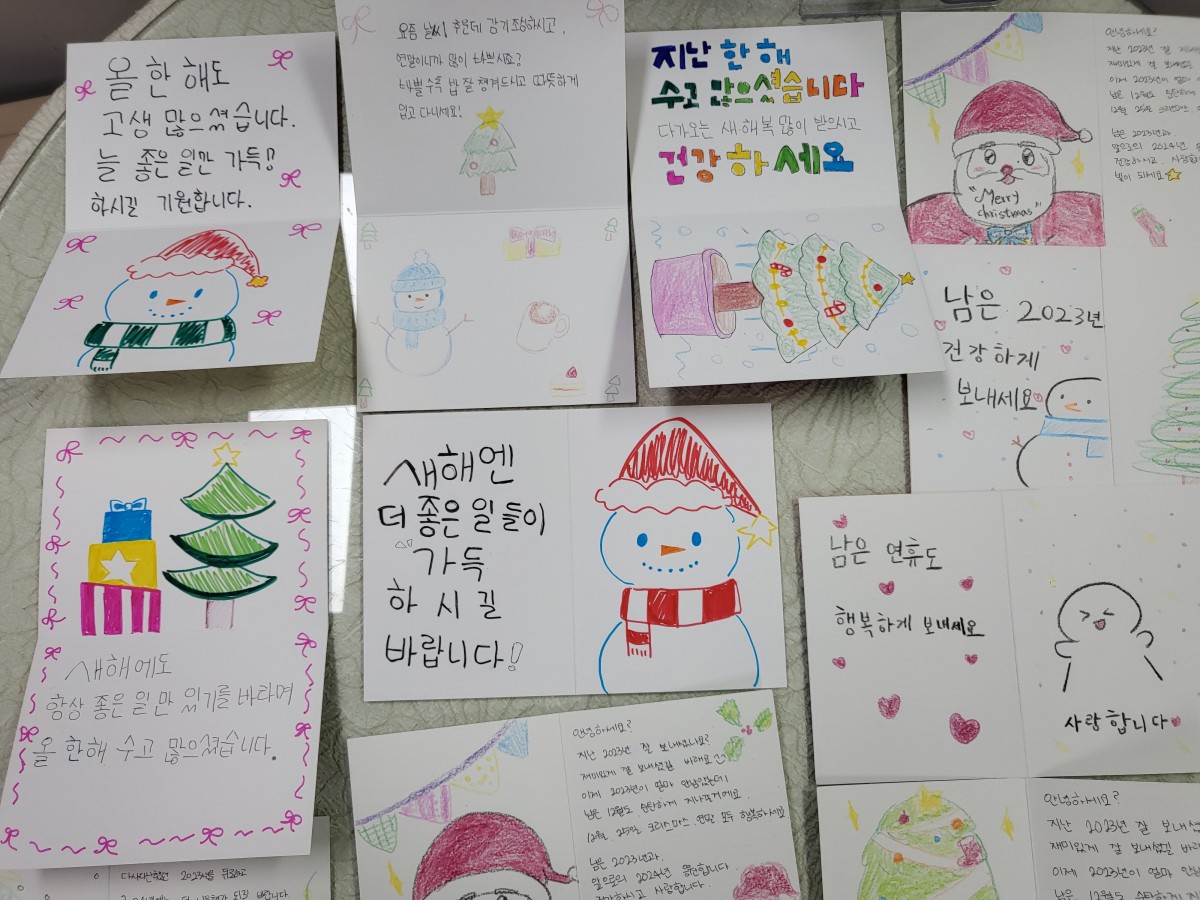 올 한 해도
고생 많으셨습니다.
늘 좋은 일만 가득!
하시길 기원합니다.
요즘 날씨 추운데 감기 조심하시고,
연말이니까 많이 바쁘시죠?
바쁠수록 밥 잘 챙겨드시고 따뜻하게
입고 다니세요!
지난 한 해
수고 많으셨습니다
다가오는 새해 복 많이 받으시고
건강하세요
"Merry
christmas"
안녕하세요?
지난 2023년 잘
재미있게 잘 보내
이제 2023년이 얼마
남은 12월도
12월 25일 크리스마스
남은 2023년과
앞으로의 2024년
건강하시고 사랑
빛이 되세요
남은 2023년
건강하게
보내세요
새해에도
항상 좋은 일만 있기를 바라며
올 한해 수고 많으셨습니다.
새해엔
더 좋은 일들이
가득
하시길
바랍니다!
남은 연휴도
행복하게 보내세요
사랑합니다
안녕하세요?
지난 2023년 잘 보내셨나요?
재미있게 잘 보내셨길 바래요
이제 2023년이 얼마 안남았는데
남은 12월도 순탄하게 지나쳐가세요
12월 25일 크리스마스, 연말 모두 행복하세요
남은 2023년과
앞으로의 2024년 응원합니다
건강하시고 사랑합니다.
안녕하세요?
지난 2023년 잘 보내셨
재미있게 잘 보내셨길 바래
이제 2023년이 얼마 안
남은 12월도 순탄하게 지
2023년을